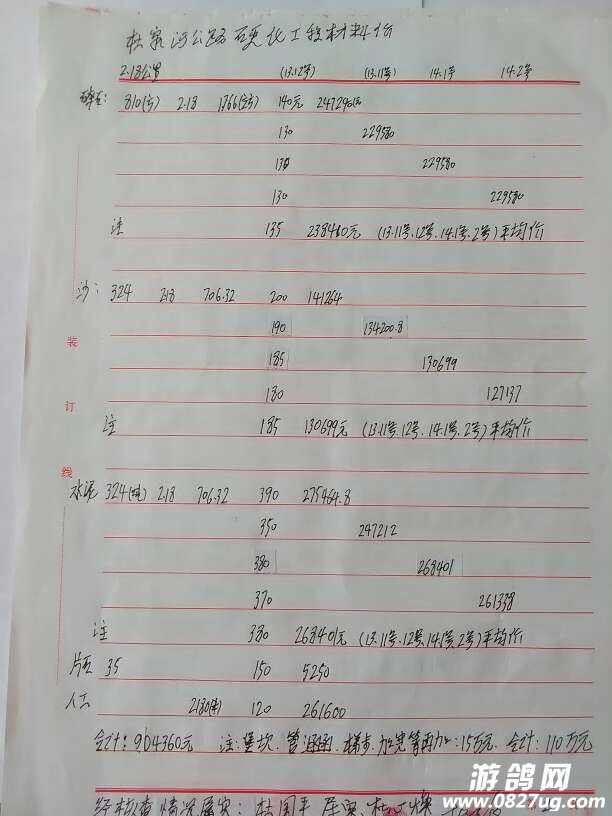 杜家沟公路硬化工程材料价
2.18公里 (13.12号) (13.11号) 14.1号 14.2号
碎石: 810(方) 2.18 1766(立方) 140元 247240元
130 229580
130 229580
130 229580
注 135 238410元 (13.11号、12号、14.1号、2号)平均价
沙: 324 2.18 706.32 200 141264
190 134200.8
185 130699
180 127137
注 185 130699元 (13.11号、12号、14.1号、2号)平均价
装
订
线
水泥 324(吨) 2.18 706.32 390 275464.8
350 247212
380 268401
370 261338
注 380 268401元 (13.11号、12号、14.1号、2号)平均价
片石 35 150 5250
人工 2180(米) 120 261600
合计: 904360元 注: 堡坎、管涵、梯步、加宽等附加: 15万元、合计: 110万元
经核查情况属实:
游鸽网
www.0827ug.com